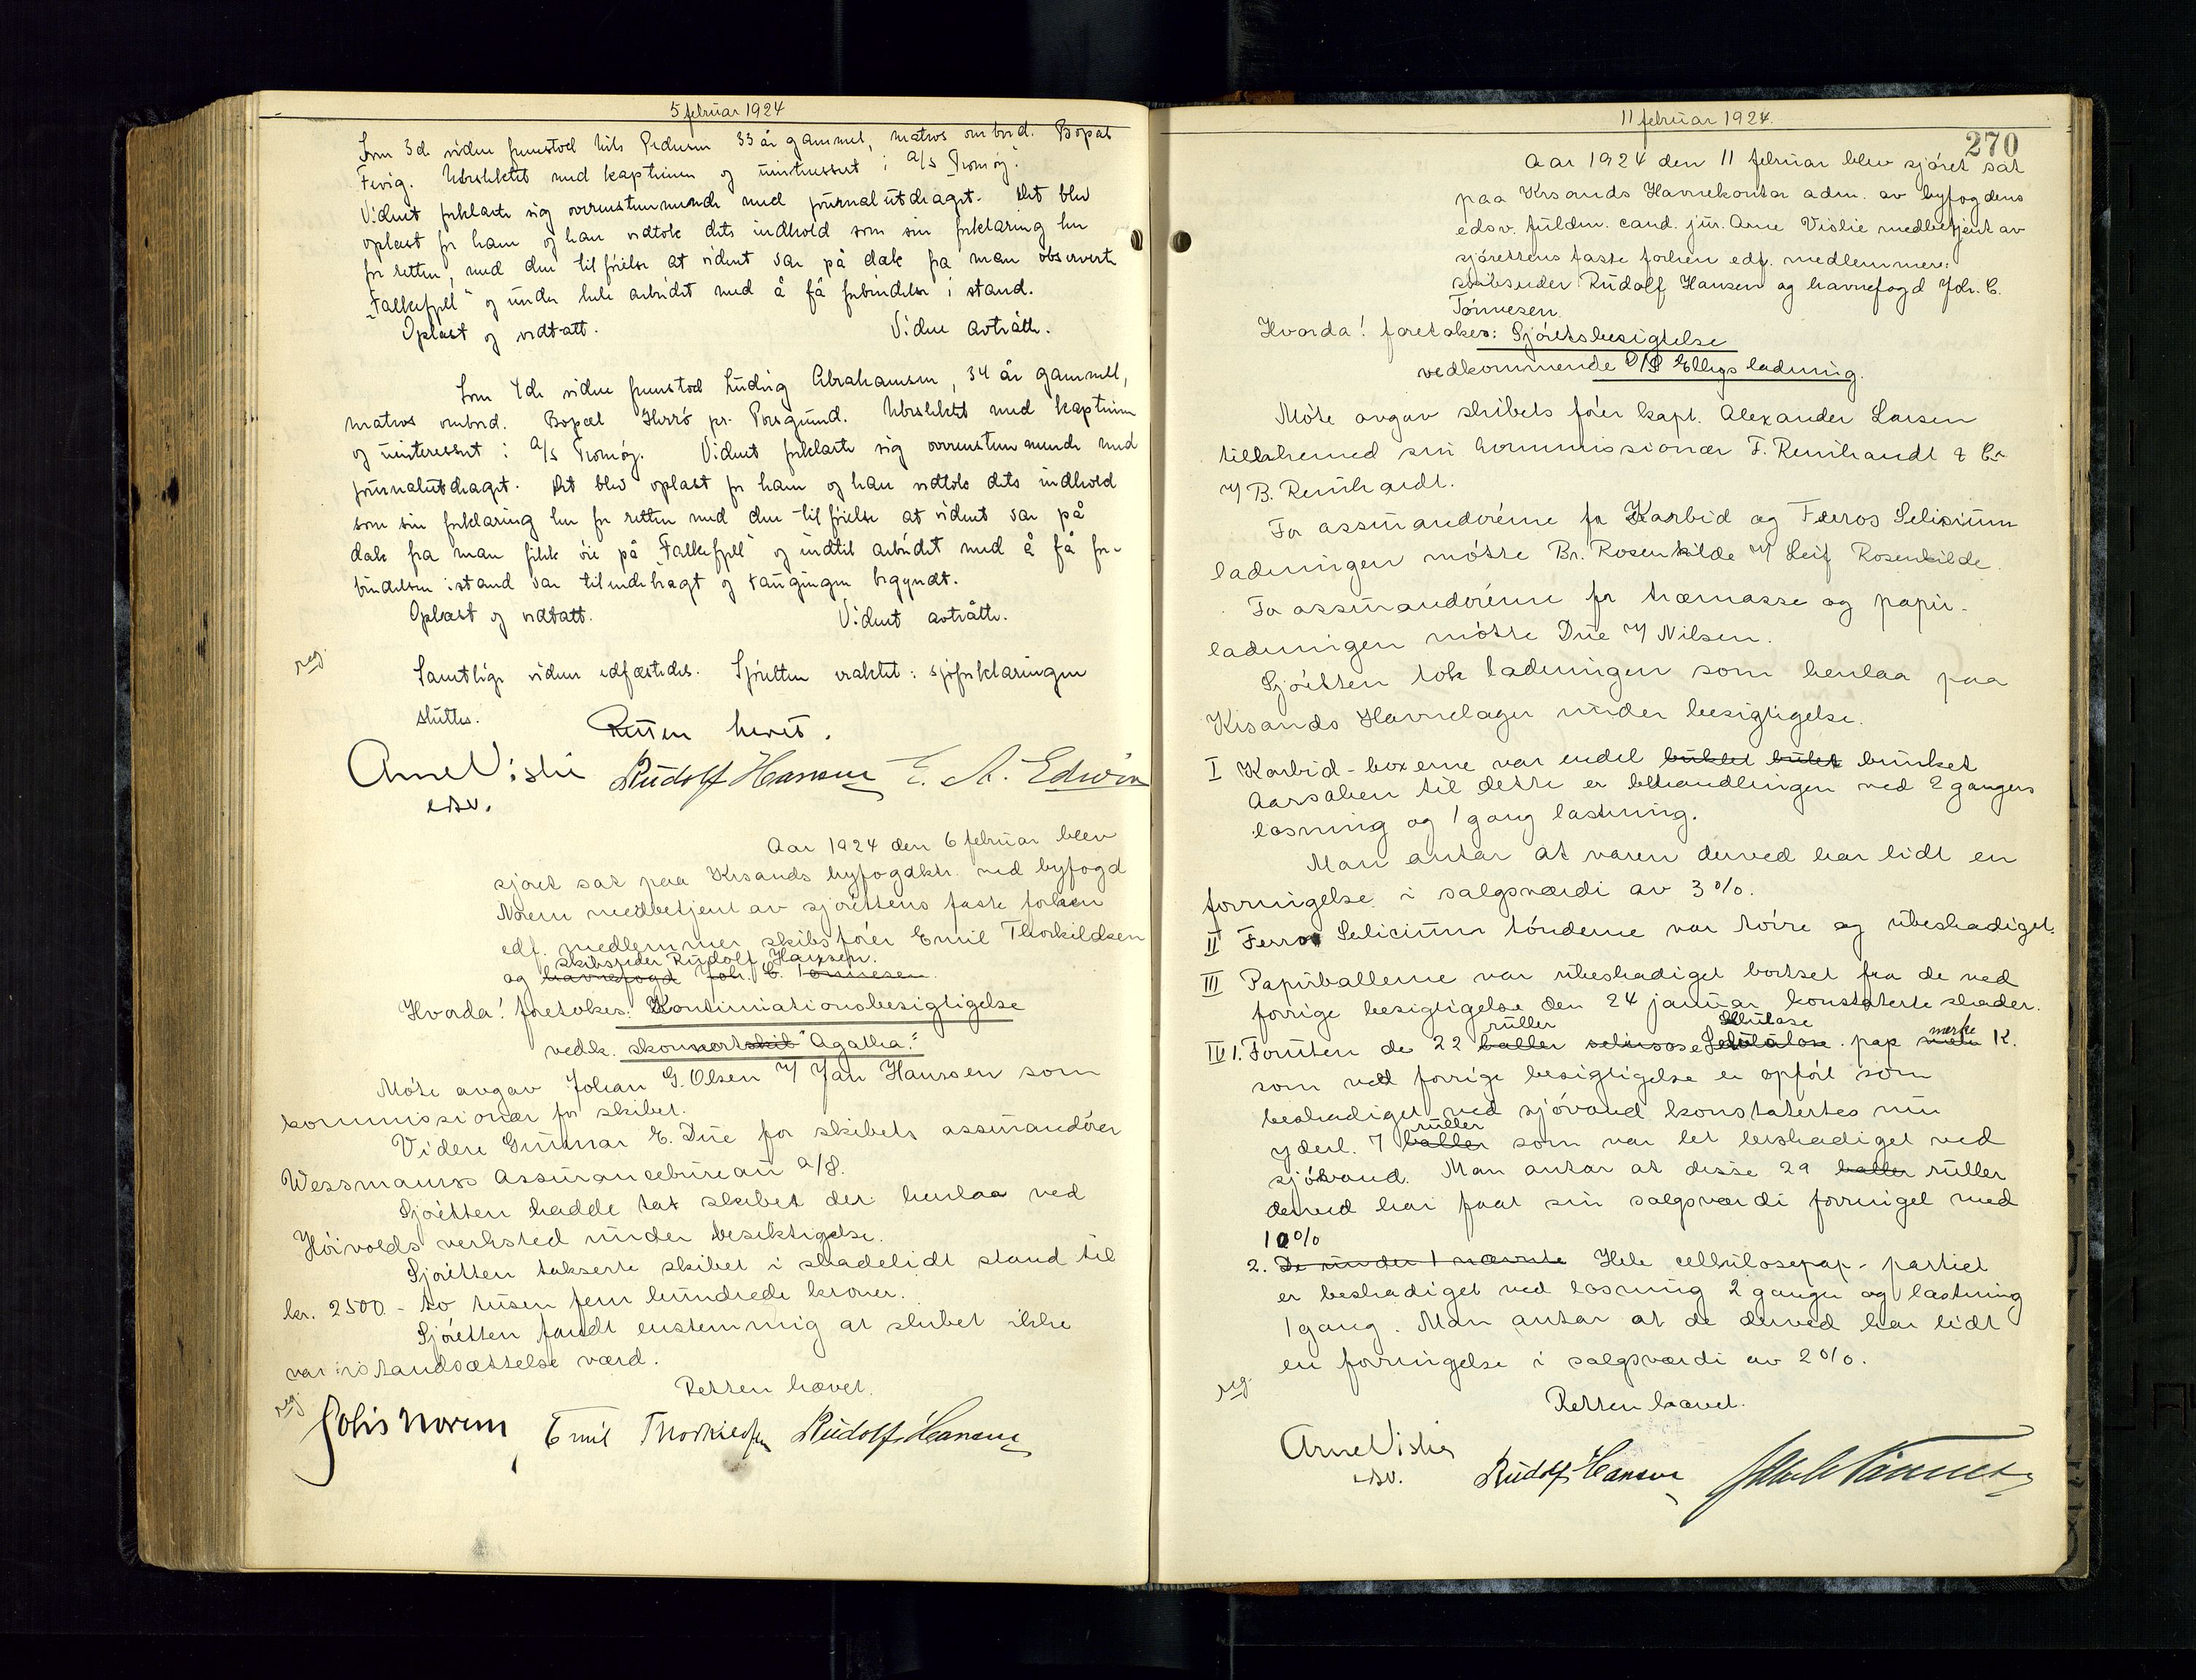 5 februar 1924
Som 3de vidne fremstod Nils Pedersen 33 år gammel, matros ombord. Bopæl
Fevig. Ubeslektet med kapteinen og uinteressert i A/S "Tromøy".
Vidnet forklarte sig overenstemmende med journalutdraget. Det blev
oplæst for ham og han vedtok dets indhold som sin forklaring her
for retten, med den tilføielse at vidnet var på dæk fra man observerte
"Falkefjell" og under hele arbeidet med å få forbindelse i stand.
Oplæst og vedtatt. Vidne avtrådte.
Som 4de vidne fremstod Ludvig Abrahamsen, 34 år gammel,
matros ombord. Bopæl Herrö pr. Porsgrund. Ubeslektet med kapteinen
og uinteressert i A/S Tromøy. Vidnet forklarte sig overenstemmende med
journalutdraget. Det blev oplæst for ham og han vedtok dets indhold
som sin forklaring her for retten med den tilföielse at vidnet var på
dæk fra man fikk öie på "Falkefjell" og indtil arbeidet med å få for-
bindelsen istand var tilendebragt og taugingen begyndt.
Oplæst og vedtatt. Vidnet avtrådte.
reg.
Samtlige vidner edfæstedes. Sjöretten eraktet: sjöforklaringen
sluttes.
Retten hevet.
Arne Vislie Rudolf Hansen E. A. Edwin
edsv.
Aar 1924 den 6 februar blev
sjöret sat paa Krsands byfogdktr. ved byfogd
Norem medbetjent av sjörettens faste forhen
edf. medlemmer skibsförer Emil Thorkildsen
skibsreder Rudolf Hansen.
og havnefogd Joh. C. Tönnesen.
Hvorda! foretokes: Kontinuationsbesigtigelse
vedk. skonnertskib "Agatha."
Möte avgav Johan G. Olsen v/ Jan Hanssen som
kommissionær for skibet.
Videre Gunnar E. Due for skibets assurandörer
Wessmanns Assurancebureau A/S.
Sjöretten hadde tat skibet der henlaa ved
Höivolds verksted under besiktigelse.
Sjöretten takserte skibet i skadelidt stand til
kr. 2500 - to tusen fem hundrede kroner.
Sjöretten fandt enstemmig at skibet ikke
var istandsættelse værd.
Retten hævet.
reg.
Johs Norem Emil Thorkildsen Rudolf Hansen
11 februar 1924.
270
Aar 1924 den 11 februar blev sjöret sat
paa Krsands Havnekontor adm. av byfogdens
edsv. fuldm. cand. jur. Arne Vislie medbetjent av
sjörettens faste forhen edf. medlemmer:
skibsreder Rudolf Hansen og havnefogd Joh. C.
Tönnesen.
Hvorda! foretokes: Sjöretsbesigtelse
vedkommende D/S Ellys ladning.
Möte avgav skibets förer kapt. Alexander Larsen
tillikemed sin kommissionær F. Reinhardt & Co
v/ B. Reinhardt.
For assurandörerne for Karbid og Ferros Selisium
ladningen mötte Br. Rosenkilde v/ Leif Rosenkilde.
For assurandörerne for træmasse og papir-
ladningen mötte Due v/ Nilsen.
Sjöretten tok ladningen som henlaa paa
Krsands Havnelager under besigtigelse.
I Karbid-boxerne var endel buklet bulet bunket
Aarsaken til dette er behandlingen ved 2 gangers
losning og 1 gang lastning.
Man antar at varen derved har lidt en
forringelse i salgsværdi av 3%.
II Ferro Selicium tönderne var törre og ubeskadiget.
III Papirballerne var ubeskadiget bortset fra de ved
forrige besigtigelse den 24 januar konstaterte skader.
ruller cellulose merke
IV 1. Foruten de 22 baller selusose Selulose. pap K.
som ved forrige besigtigelse er opfört som
beskadiget ved sjövand konstatertes nu
ruller
yderl. 7 baller som var let beskadiget ved
sjövand. Man antar at disse 29 baller ruller
derved har faat sin salgsværdi forringet med
10%
2. De under 1 nævnte Hele cellulosepap-partiet
er beskadiget ved losning 2 ganger og lastning
1 gang. Man antar at de derved har lidt
en forringelse i salgsværdi av 2%.
reg.
Retten hævet.
Arne Vislie Rudolf Hansen Joh C Tönnesen
edsv.